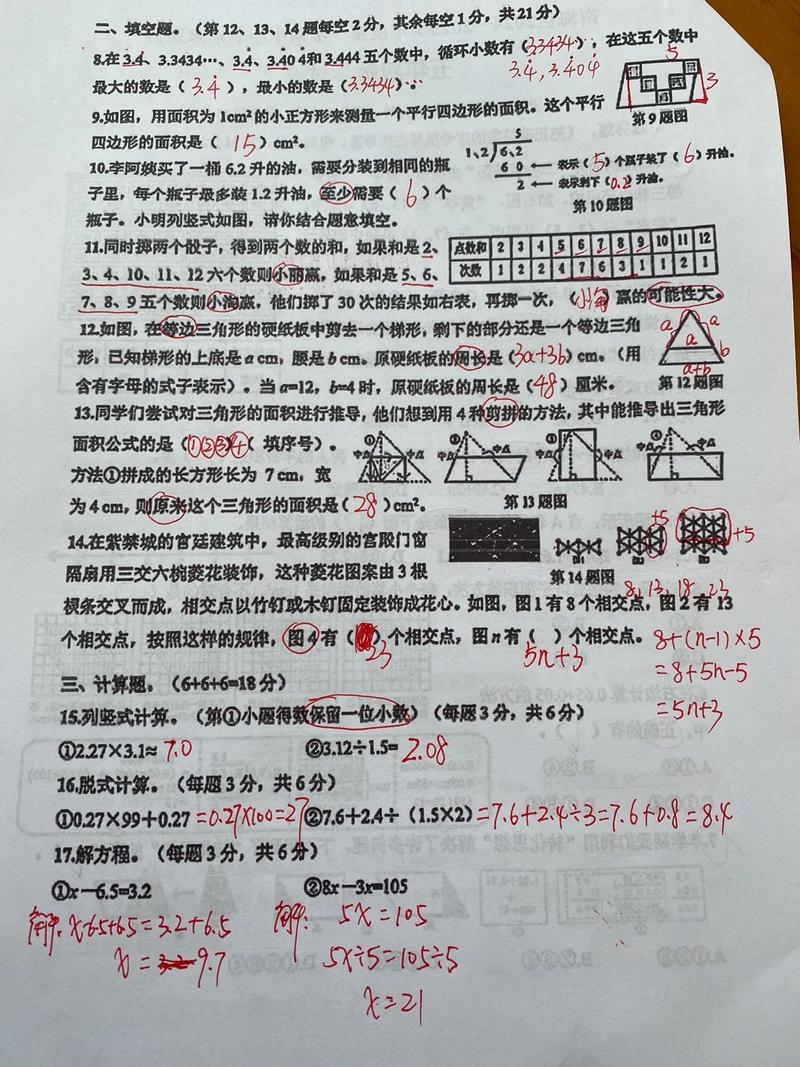 二、填空题。（第12、13、14题每空2分，其余每空1分，共21分）
8.在3.4、3.3434…、3.4̇、3.4̇04̇和3.444五个数中，循环小数有（3.3434…），在这五个数中
3.4̇，3.4̇04̇
最大的数是（3.4̇），最小的数是（3.3434…）。
5
3
9.如图，用面积为1cm²的小正方形来测量一个平行四边形的面积。这个平行
第9题图
四边形的面积是（15）cm²。
10.李阿姨买了一桶6.2升的油，需要分装到相同的瓶
子里，每个瓶子最多装1.2升油，至少需要（6）个
瓶子。小明列竖式如图，请你结合题意填空。
5
1,2 6,2
6 0 ← 表示（5）个瓶子装了（6）升油。
2 ← 表示剩下（0.2）升油。
第10题图
11.同时掷两个骰子，得到两个数的和，如果和是2、
3、4、10、11、12六个数则小丽赢，如果和是5、6、
点数和 2 3 4 5 6 7 8 9 10 11 12
次数 1 2 2 4 7 6 3 1 1 2 1
7、8、9五个数则小海赢，他们掷了30次的结果如右表，再掷一次，（小海）赢的可能性大。
12.如图，在等边三角形的硬纸板中剪去一个梯形，剩下的部分还是一个等边三角
形，已知梯形的上底是a cm，腰是b cm。原硬纸板的周长是（3a+3b）cm。（用
含有字母的式子表示）。当a=12，b=4时，原硬纸板的周长是（48）厘米。
a a
a
b
a+b
第12题图
13.同学们尝试对三角形的面积进行推导，他们想到用4种剪拼的方法，其中能推导出三角形
面积公式的是（①②③④）（填序号）。
① 中点 ② 中点 ③ 中点 中点 ④ 中点
方法①拼成的长方形长为7cm，宽
为4cm，则原来这个三角形的面积是（28）cm²。
第13题图
14.在紫禁城的宫廷建筑中，最高级别的宫殿门窗
隔扇用三交六椀菱花装饰，这种菱花图案由3根
+5
+5
图1 图2 图3
第14题图
8，13，18，23
棂条交叉而成，相交点以竹钉或木钉固定装饰成花心。如图，图1有8个相交点，图2有13
个相交点，按照这样的规律，图4有（ ）个相交点，图n有（ ）个相交点。
23
5n+3
8+(n-1)×5
=8+5n-5
=5n+3
三、计算题。（6+6+6=18分）
15.列竖式计算。（第①小题得数保留一位小数）（每题3分，共6分）
①2.27×3.1≈ 7.0
②3.12÷1.5= 2.08
16.脱式计算。（每题3分，共6分）
①0.27×99＋0.27 =0.27×100=27
②7.6＋2.4÷（1.5×2）=7.6+2.4÷3=7.6+0.8=8.4
17.解方程。（每题3分，共6分）
①x－6.5=3.2
②8x－3x=105
解：x-6.5+6.5=3.2+6.5
x=9.7
解：5x=105
5x÷5=105÷5
x=21